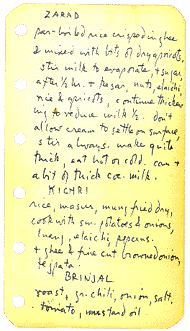 ZARAD
par-boiled rice crisped in ghee
& mixed with lots of dry apricots.
stir milk to evaporate, + sugar
after ½ hr. + kesar, nuts, elaichi
rice & apricots, continue thicken
ing to reduce milk ½. don't
allow cream to settle on surface,
stir always. make quite
thick, eat hot or cold. can +
a bit of thick coc. milk.
KICHRI
rice, masur, mung fried dry,
cook with sm. potatoes & onions,
luang, elaichi, pepcorns.
+ ghee & fine cut browned onion,
tejpata.
BRINJAL
roast, gr. chili, onion, salt,
tomato, mustard oil